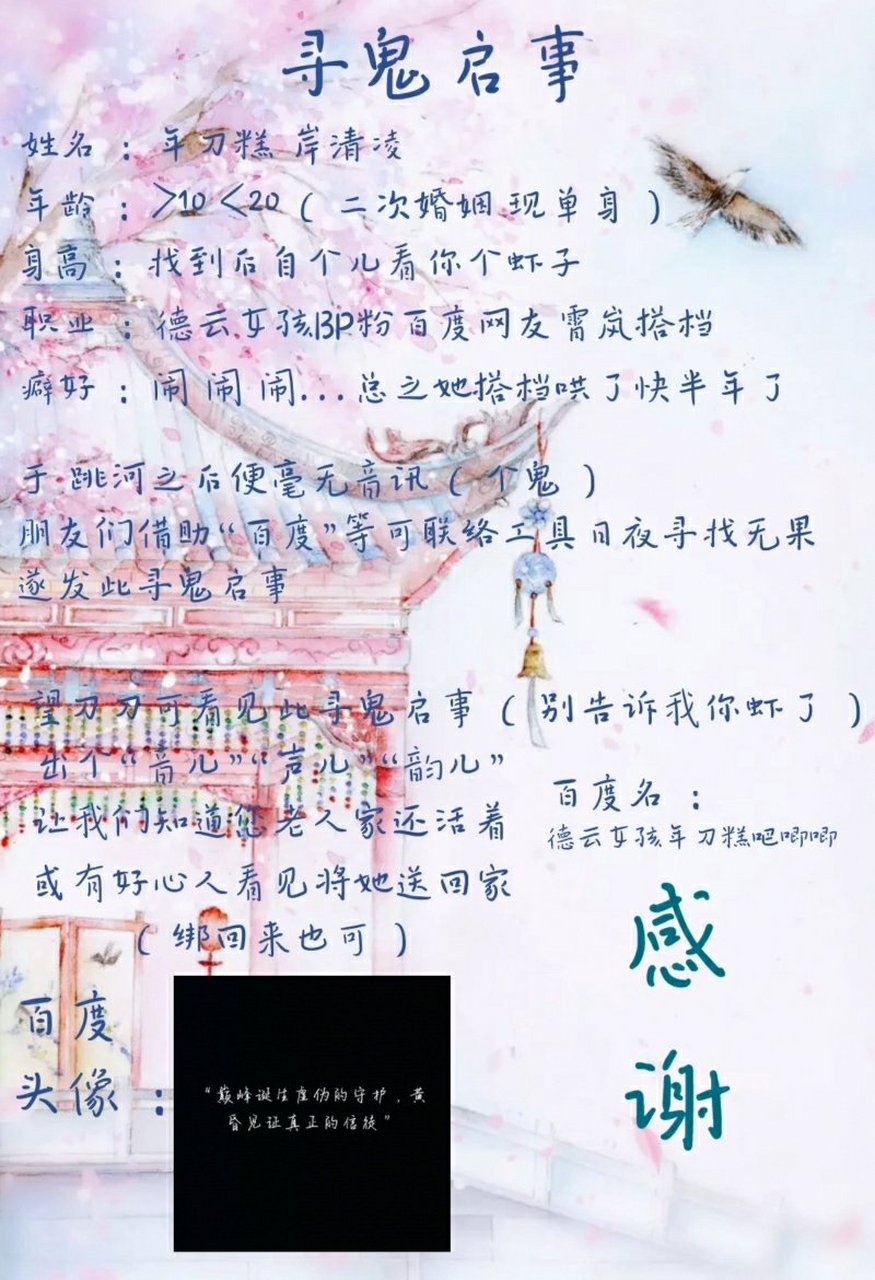 寻鬼启事
姓名：年刀糕 岸清凌
年龄：>10 <20（二次婚姻,现单身）
身高：找到后自个儿看你个虾子
职业：德云女孩BP粉百度网友霄岚搭档
癖好：闹 闹 闹...总之她搭档哄了快半年了
于跳河之后便毫无音讯（个鬼）
朋友们借助“百度”等可联络工具日夜寻找无果
遂发此寻鬼启事
望刀刀可看见此寻鬼启事（别告诉我你虾了）
出个“音儿”“声儿”“韵儿”
让我们知道您老人家还活着
或有好心人看见将她送回家
（绑回来也可）
百度名：
德云女孩年刀糕吧唧唧
感
谢
百度
头像：
“巅峰诞生虚伪的守护，黄
昏见证真正的信徒”